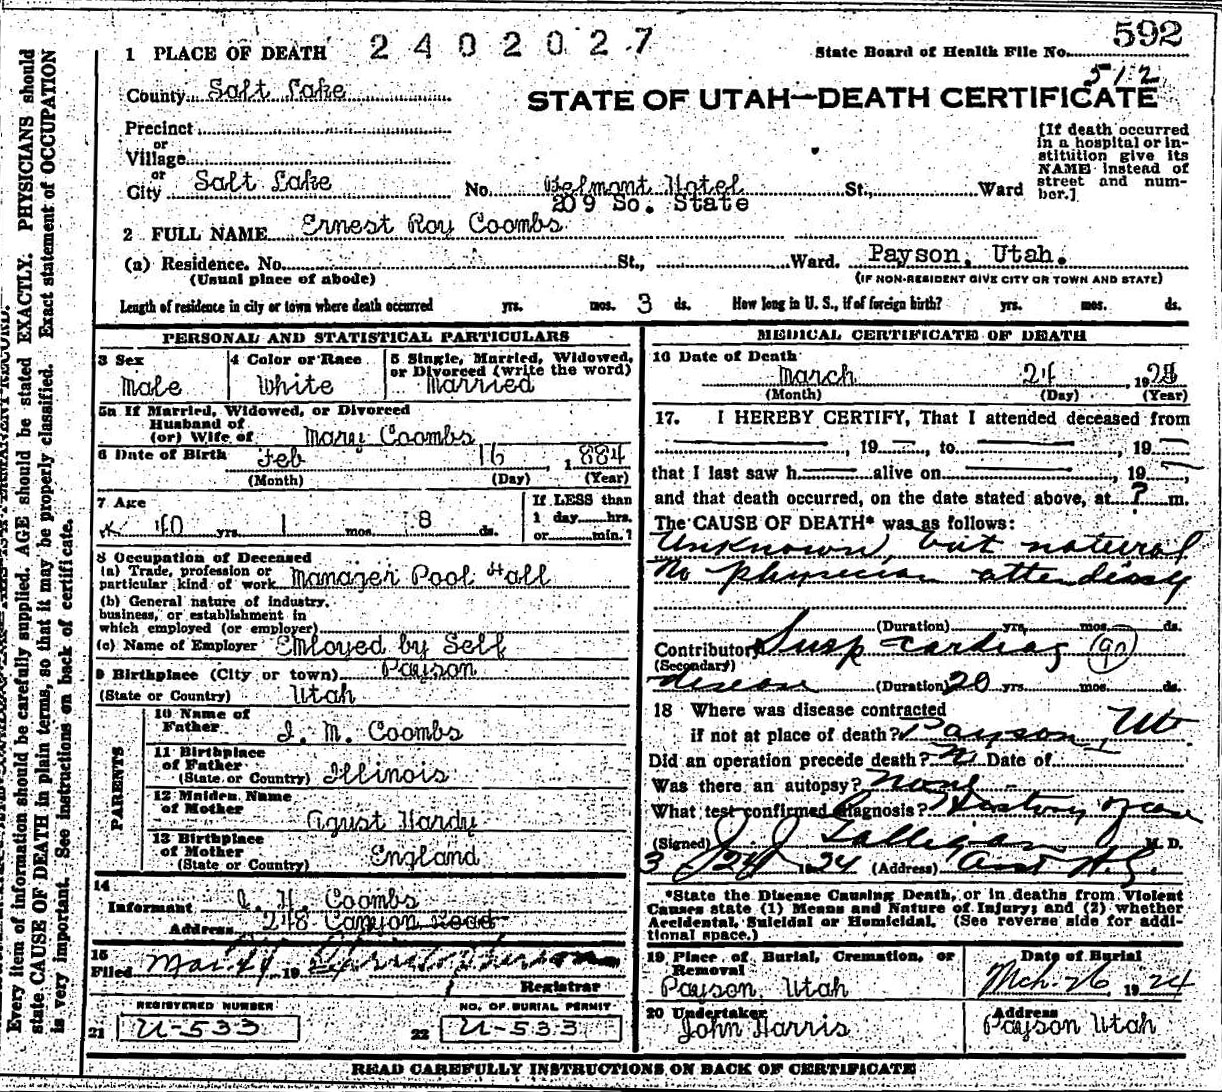 2402027
592
1 PLACE OF DEATH
State Board of Health File No.
512
County Salt Lake
STATE OF UTAH—DEATH CERTIFICATE
Precinct
or
Village
or
City Salt Lake No. Belmont Hotel St., Ward
209 So. State
[If death occurred
in a hospital or in-
stitution give its
NAME instead of
street and num-
ber.]
2 FULL NAME Ernest Roy Coombs
(a) Residence. No. St., Ward. Payson, Utah.
(Usual place of abode) (IF NON-RESIDENT GIVE CITY OR TOWN AND STATE)
Length of residence in city or town where death occurred yrs. mos. 3 ds. How long in U. S., if of foreign birth? yrs. mos. ds.
PERSONAL AND STATISTICAL PARTICULARS
3 Sex
Male
4 Color or Race
White
5 Single, Married, Widowed,
or Divorced (write the word)
Married
5a If Married, Widowed, or Divorced
Husband of
(or) Wife of Mary Coombs
6 Date of Birth Feb 16, 1884
(Month) (Day) (Year)
7 Age
40 yrs. 1 mos. 8 ds.
If LESS than
1 day hrs.
or min.?
8 Occupation of Deceased
(a) Trade, profession or
particular kind of work Manager Pool Hall
(b) General nature of industry,
business, or establishment in
which employed (or employer)
(c) Name of Employer Emloyed by Self
9 Birthplace (City or town) Payson
(State or Country) Utah
PARENTS
10 Name of
Father I. M. Coombs
11 Birthplace
of Father
(State or Country) Illinois
12 Maiden Name
of Mother Agust Hardy
13 Birthplace
of Mother
(State or Country) England
14
Informant J. H. Coombs
Address 248 Canyon Road
15
Filed Mar 19
Registrar
REGISTERED NUMBER
21 U-533
NO. OF BURIAL PERMIT
22 U-533
MEDICAL CERTIFICATE OF DEATH
16 Date of Death
March 24, 192
(Month) (Day) (Year)
17. I HEREBY CERTIFY, That I attended deceased from
, 19 , to , 19
that I last saw h alive on , 19 ,
and that death occurred, on the date stated above, at ? m.
The CAUSE OF DEATH* was as follows:
Unknown, but natural
No physician attending
(Duration) yrs. mos. ds.
Contributory Susp cardiac (90)
(Secondary)
disease (Duration) 20 yrs. mos. ds.
18 Where was disease contracted
if not at place of death? Payson, Ut.
Did an operation precede death? N Date of
Was there an autopsy? None
What test confirmed diagnosis? History of case
(Signed) M. D.
3/24 1924 (Address)
*State the Disease Causing Death, or in deaths from Violent
Causes state (1) Means and Nature of Injury; and (2) whether
Accidental, Suicidal or Homicidal. (See reverse side for addi-
tional space.)
19 Place of Burial, Cremation, or
Removal
Payson, Utah
Date of Burial
Mch. 26 1924
20 Undertaker
John Harris
Address
Payson Utah
READ CAREFULLY INSTRUCTIONS ON BACK OF CERTIFICATE
Every item of information should be carefully supplied. AGE should be stated EXACTLY. PHYSICIANS should
state CAUSE OF DEATH in plain terms, so that it may be properly classified. Exact statement of OCCUPATION
is very important. See instructions on back of certificate.